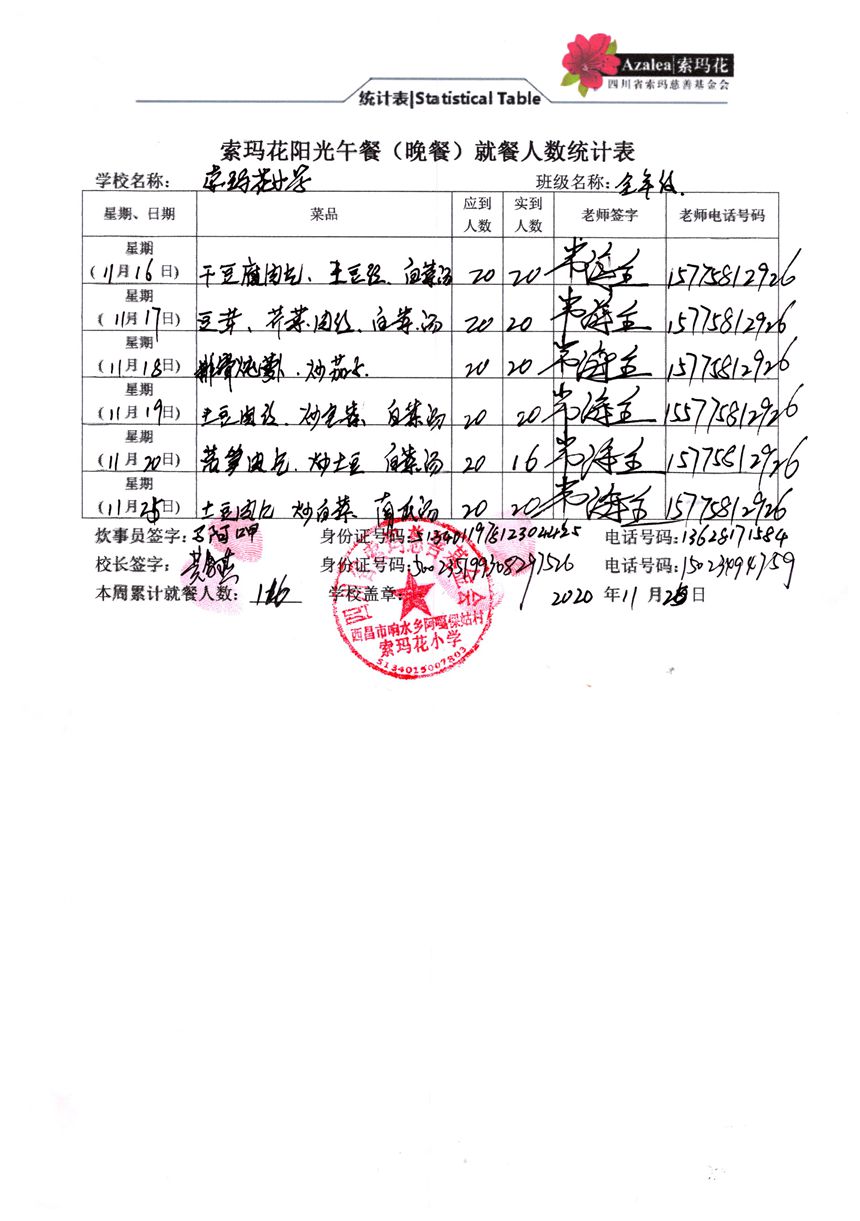 Azalea|索玛花
四川省索玛慈善基金会
统计表|Statistical Table
索玛花阳光午餐（晚餐）就餐人数统计表
学校名称： 索玛花小学 班级名称：全年级.
星期、日期 菜品 应到人数 实到人数 老师签字 老师电话号码
星期
(11月16日) 干豆腐肉片、土豆丝、白菜汤 20 20 15775812926
星期
(11月17日) 豆芽、芹菜肉丝、白菜汤 20 20 15775812926
星期
(11月18日) 排骨炖萝卜、炒茄子. 20 20 15775812926
星期
(11月19日) 土豆肉丝、炒 白菜汤 20 20 155775812926
星期
(11月20日) 莴笋肉片、炒土豆 白菜汤 20 16 15775812926
星期
(11月25日) 土豆肉片 炒白菜、南瓜汤 20 20 15775812926
炊事员签字: 阿呷 身份证号码: 电话号码:13628171584
校长签字： 身份证号码: 电话号码:15023494759
本周累计就餐人数： 116 学校盖章: 2020 年 11 月 25 日
四川省索玛慈善基金会
西昌市响水乡阿嘎倮姑村
索玛花小学
5134015007893